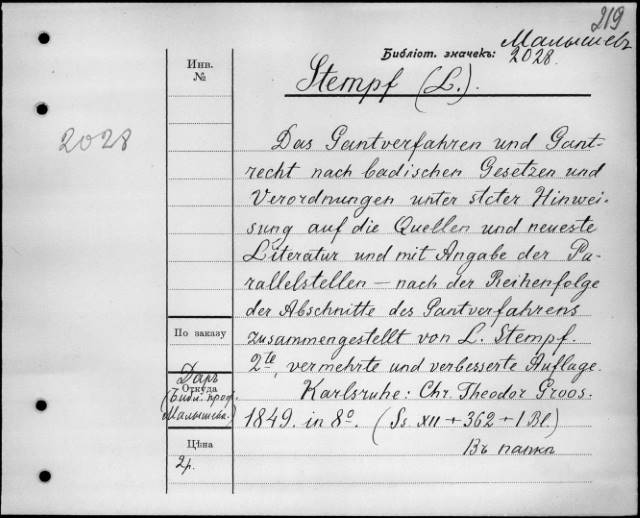 219
Малышевъ
Библіот. значекъ: 2028.
Инв.
№
Stempf (L.).
2028
Das Gantverfahren und Gant-
recht nach badischen Gesetzen und
Verordnungen unter steter Hinwei-
sung auf die Quellen und neueste
Literatur und mit Angabe der Pa-
rallelstellen — nach der Reihenfolge
der Abschnitte des Gantverfahrens
zusammengestellt von L. Stempf.
2te, vermehrte und verbesserte Auflage.
Karlsruhe: Chr. Theodor Groos.
1849. in 8º. (Ss. XII + 362 + 1 Bl)
Въ папкѣ
По заказу
Даръ
Откуда
(Библ. проф.
Малышева.)
Цѣна
2 р.